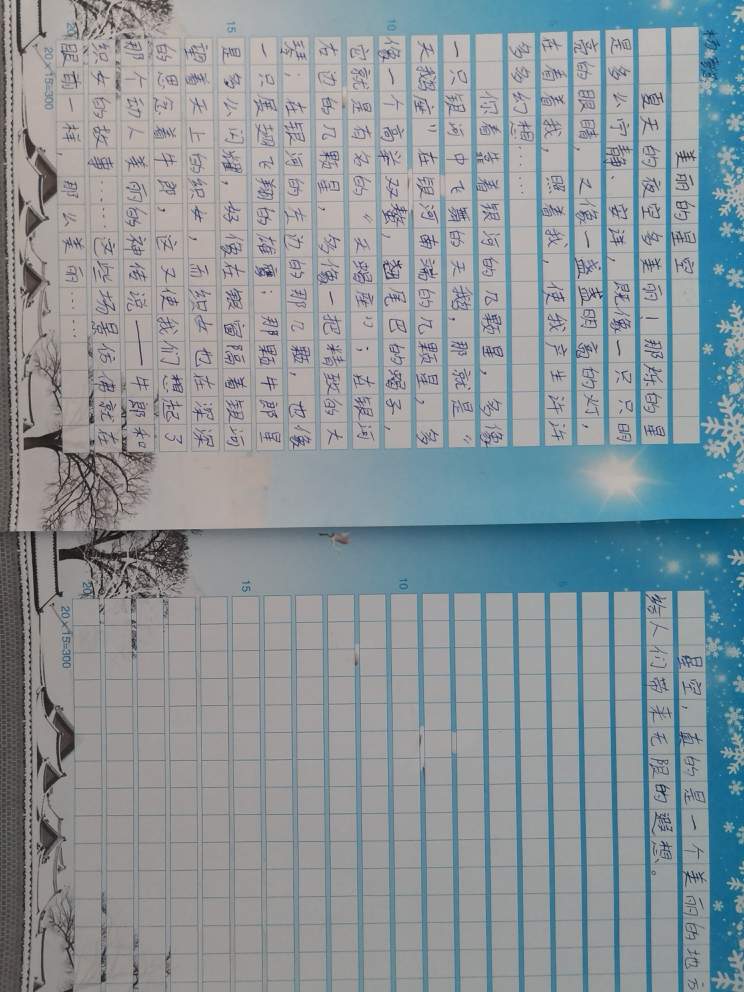 美丽的星空
夏天的夜空多美丽!那的星
是多么宁静、安详,既像一只只明
亮的眼睛,又像一盏盏明亮的灯,
在看着我,照着我,使我产生许许
多多幻想……
你看着银河的几點星,多像
一只银河中飞舞的天鹅,那就是“
天鹅座”在银河南端的几點星,多
像一个高举双螯,翘尾巴的蝎子,
它就是有名的“天蝎座”;在银河
右边的几點星,多像一把精致的大
琴;在银河的左边的那几點,也像
一只展翅飞翔的雄鹰;那點牛郎星
是多么闪耀,好像在隔着银河
望着天上的织女,而织女也在深深
的思念着牛郎,这又使我们想起了
那个动人美丽的神传说——牛郎和
织女的故事……这些场景仿佛就在
眼前一样,那么美丽……
10
15
20
20×15=300
星空,真的是一个美丽的地方
给人们带来无限的遐想。
10
15
20
20×15=300